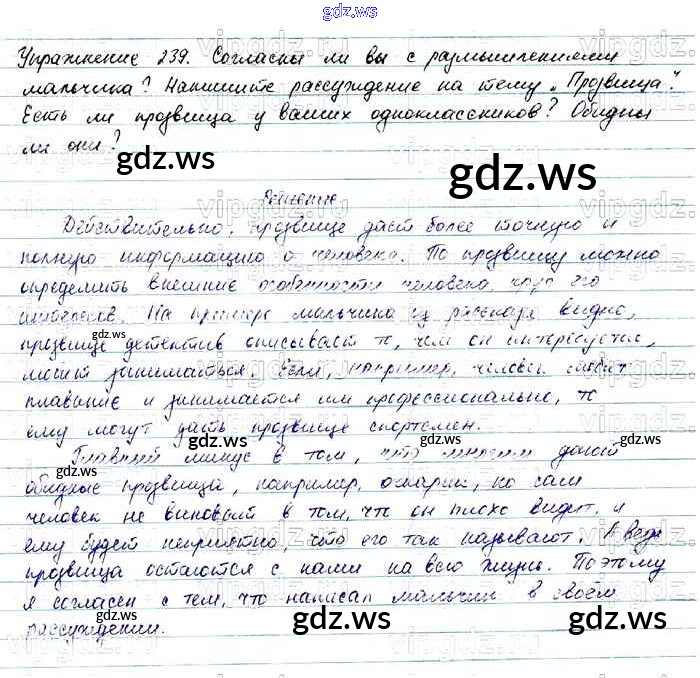 gdz.ws
Упражнение 239. Согласны ли вы с размышлениями
мальчика? Напишите рассуждение на тему „Прозвища".
Есть ли прозвища у ваших одноклассников? Обидны
ли они?
gdz.ws
gdz.ws
Решение
Действительно, прозвище даст более точную и
полную информацию о человеке. По прозвищу можно
определить внешние особенности человека, круг его
интересов. На примере мальчика из рассказа видно,
gdz.ws
прозвище детектив описывает то, чем он интересуется,
может заниматься. Если, например, человек любит
плавание и занимается им профессионально, то
ему могут дать прозвище спортсмен.
gdz.ws
Главный минус в том, что многим дают
gdz.ws
обидные прозвища, например, очкарик, но сам
человек не виноват в том, что он плохо видит, и
ему будет неприятно, что его так называют. А ведь
прозвища остаются с нами на всю жизнь. Поэтому
я согласен с тем, что написал мальчик в своём
рассуждении.
gdz.ws
gdz.ws